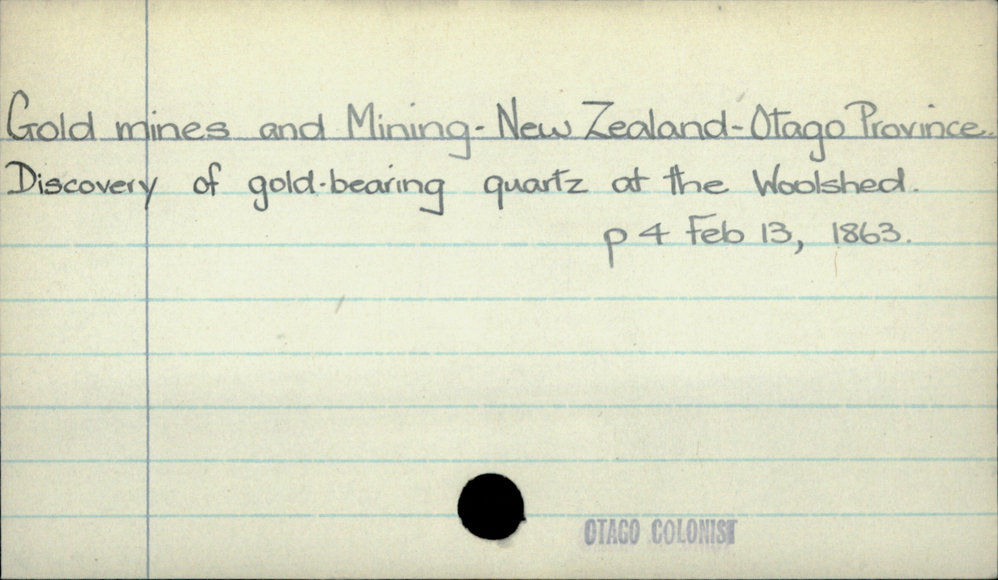 Gold mines and Mining - New Zealand - Otago Province.
Discovery of gold-bearing quartz at the Woolshed.
p 4 Feb 13, 1863.
OTAGO COLONIST